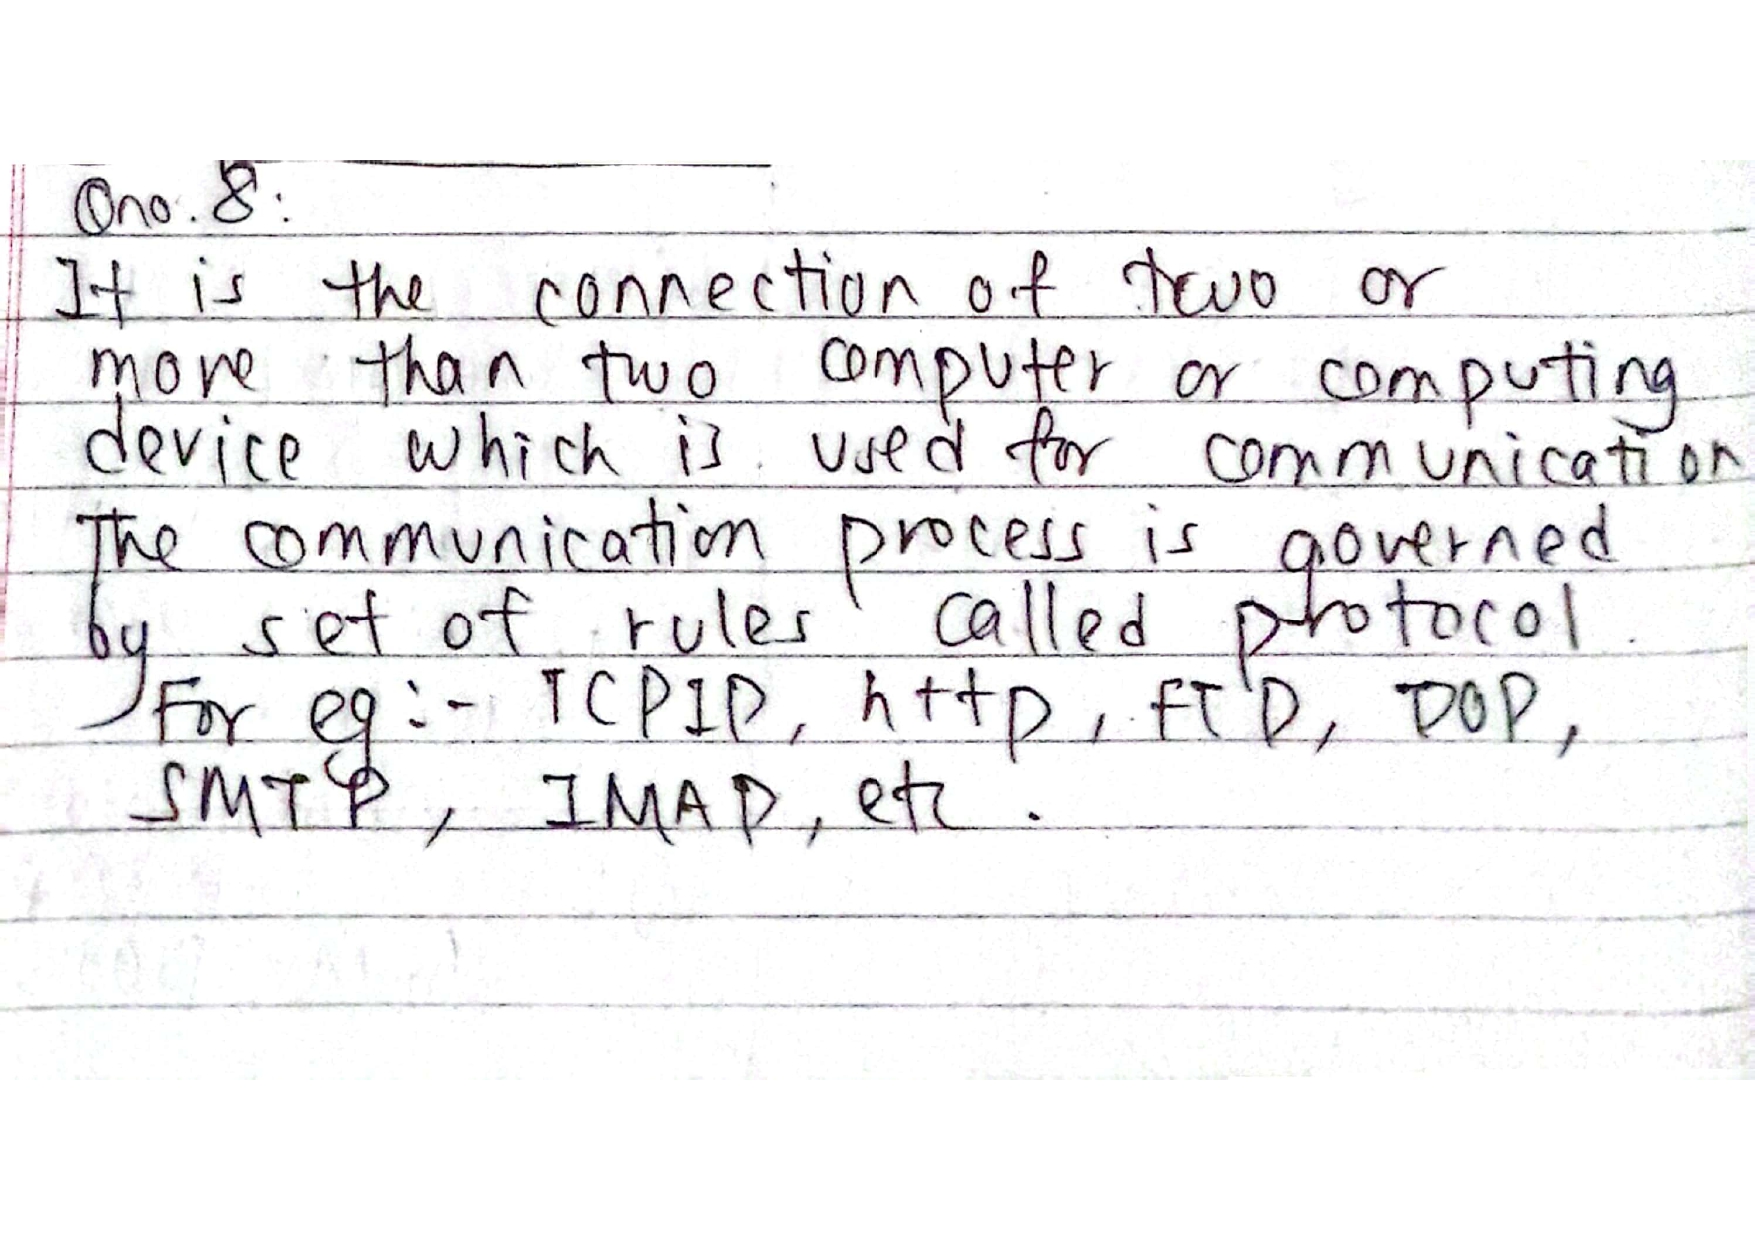 Qno. 8:
It is the connection of two or
more than two computer or computing
device which is used for communication
The communication process is governed
by set of rules called protocol.
For eg:- TCPIP, http, FTP, POP,
SMTP, IMAP, etc.